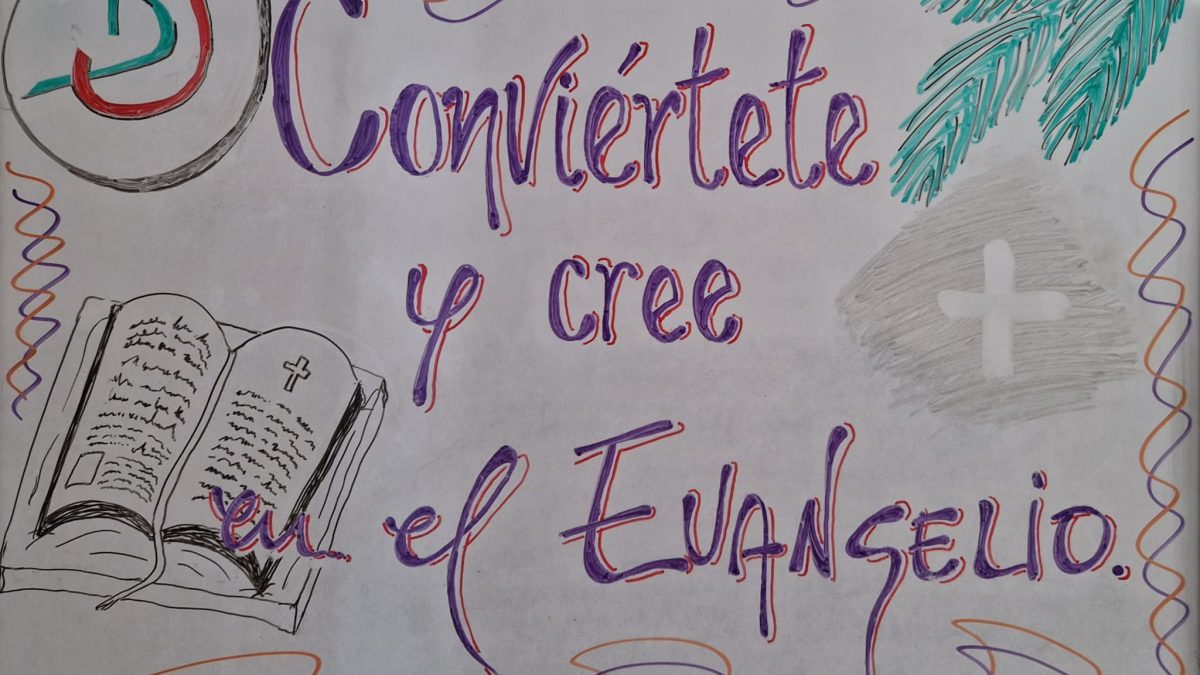 Conviértete
y cree
en el EVANGELIO.